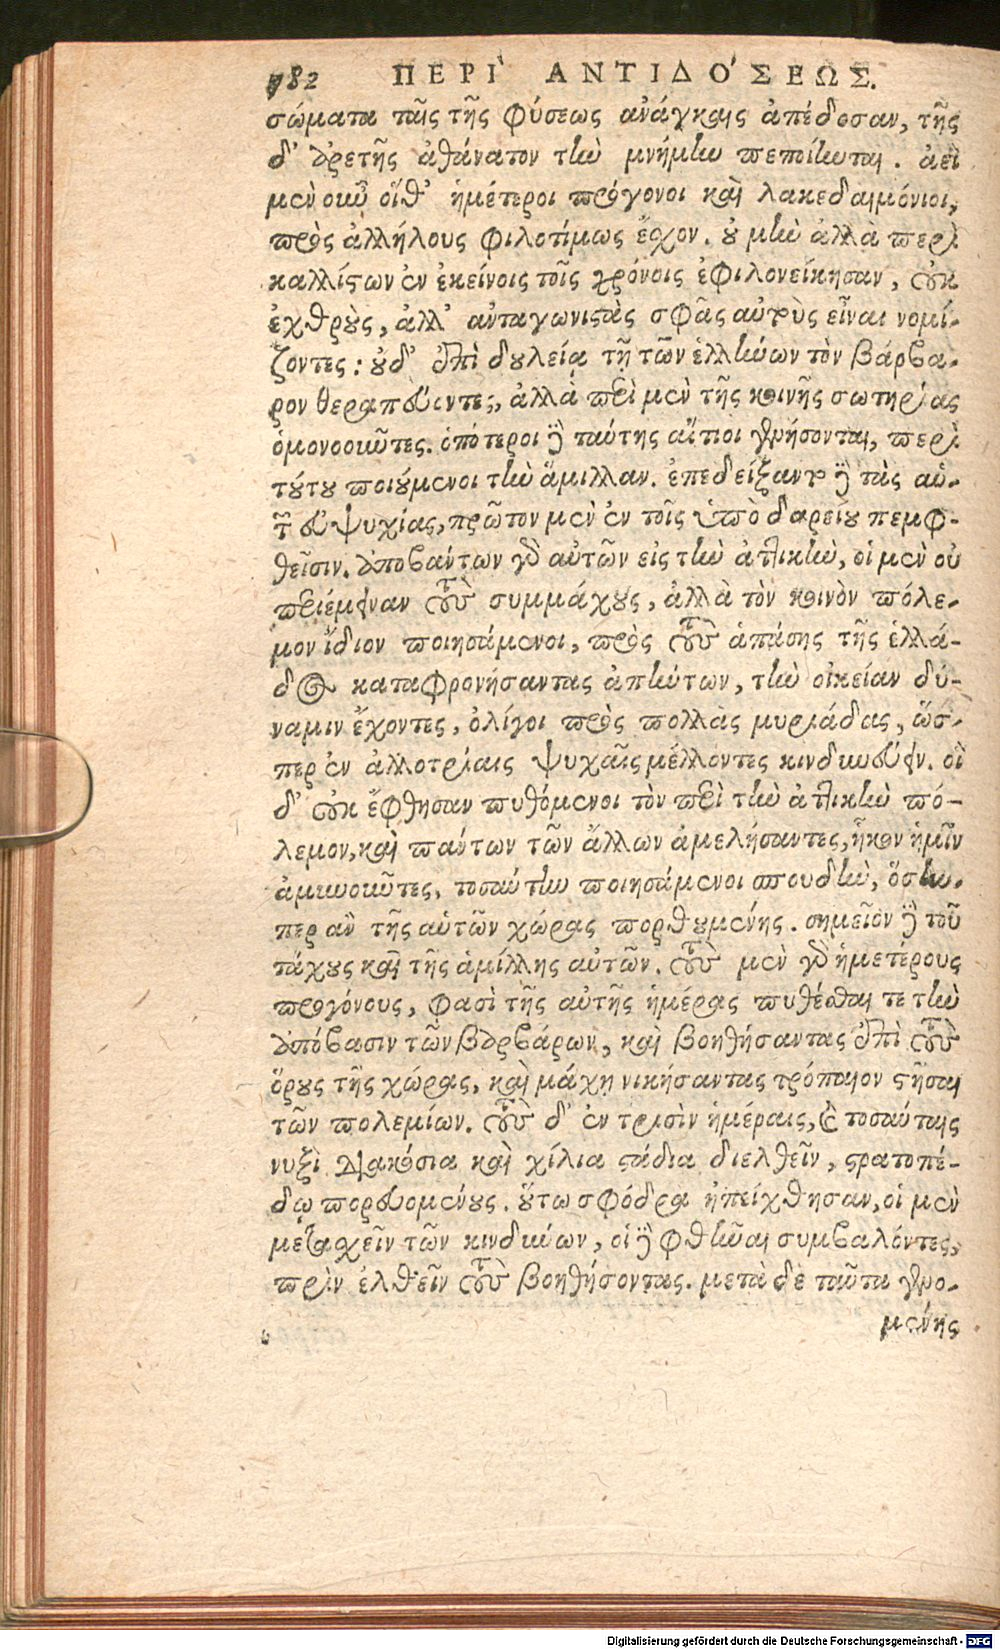 782 ΠΕΡΙ ̀ ΑΝΤΙΔΟ ́ΣΕΩΣ.
σώματα ταῖς τῆς φύσεως ἀνάγκαις ἀπέδοσαν, τῆς
δ' ἀρετῆς ἀθάνατον τὴν μνήμην πεποίηνται. ἀεὶ
μὲν οὖν οἵθ' ἡμέτεροι πρόγονοι καὶ λακεδαιμόνιοι,
πρὸς ἀλλήλους φιλοτίμως ἔχον. οὐ μὴν ἀλλὰ περὶ
καλλίστων ἐν ἐκείνοις τοῖς χρόνοις ἐφιλονείκησαν, οὐκ
ἐχθροὺς, ἀλλ' ἀνταγωνιστὰς σφᾶς αὐτοὺς εἶναι νομί-
ζοντες: οὐδ' ἐπὶ δουλείᾳ τῇ τῶν ἑλλήνων τὸν βάρβα-
ρον θεραπεύοντες, ἀλλὰ περὶ μὲν τῆς κοινῆς σωτηρίας
ὁμονοοῦντες. ὁπότεροι δὲ ταύτης αἴτιοι γενήσονται, περὶ
τούτου ποιούμενοι τὴν ἅμιλλαν. ἐπεδείξαντο δὲ τὰς αὑ-
τῶν εὐψυχίας, πρῶτον μὲν ἐν τοῖς ὑπὸ δαρείου πεμφ-
θεῖσιν. ἀποβάντων γὰρ αὐτῶν εἰς τὴν ἀττικὴν, οἱ μὲν οὐ
περιέμειναν τοὺς συμμάχους, ἀλλὰ τὸν κοινὸν πόλε-
μον ἴδιον ποιησάμενοι, πρὸς τοὺς ἁπάσης τῆς ἑλλά-
δος καταφρονήσαντας ἀπήντων, τὴν οἰκείαν δύ-
ναμιν ἔχοντες, ὀλίγοι πρὸς πολλὰς μυριάδας, ὥσ-
περ ἐν ἀλλοτρίαις ψυχαῖς μέλλοντες κινδυνεύειν. οἳ
δ' οὐκ ἔφθησαν πυθόμενοι τὸν περὶ τὴν ἀττικὴν πό-
λεμον, καὶ πάντων τῶν ἄλλων ἀμελήσαντες, ἧκον ἡμῖν
ἀμυνοῦντες, τοσαύτην ποιησάμενοι σπουδὴν, ὅσην-
περ ἂν τῆς αὑτῶν χώρας πορθουμένης. σημεῖον δὲ τοῦ
τάχους καὶ τῆς ἁμίλλης αὐτῶν. τοὺς μὲν γὰρ ἡμετέρους
προγόνους, φασὶ τῆς αὐτῆς ἡμέρας πυθέσθαι τε τὴν
ἀπόβασιν τῶν βαρβάρων, καὶ βοηθήσαντας ἐπὶ τοὺς
ὅρους τῆς χώρας, καὶ μάχῃ νικήσαντας τρόπαιον στῆσαι
τῶν πολεμίων. τοὺς δ' ἐν τρισὶν ἡμέραις, καὶ τοσαύταις
νυξὶ διακόσια καὶ χίλια στάδια διελθεῖν, στρατοπέ-
δῳ πορευομένους. οὕτω σφόδρα ἠπείχθησαν, οἱ μὲν
μετασχεῖν τῶν κινδύνων, οἱ δὲ φθῆναι συμβαλόντες,
πρὶν ἐλθεῖν τοὺς βοηθήσοντας. μετὰ δὲ ταῦτα γενο-
μένης
Digitalisierung gefördert durch die Deutsche Forschungsgemeinschaft - DFG